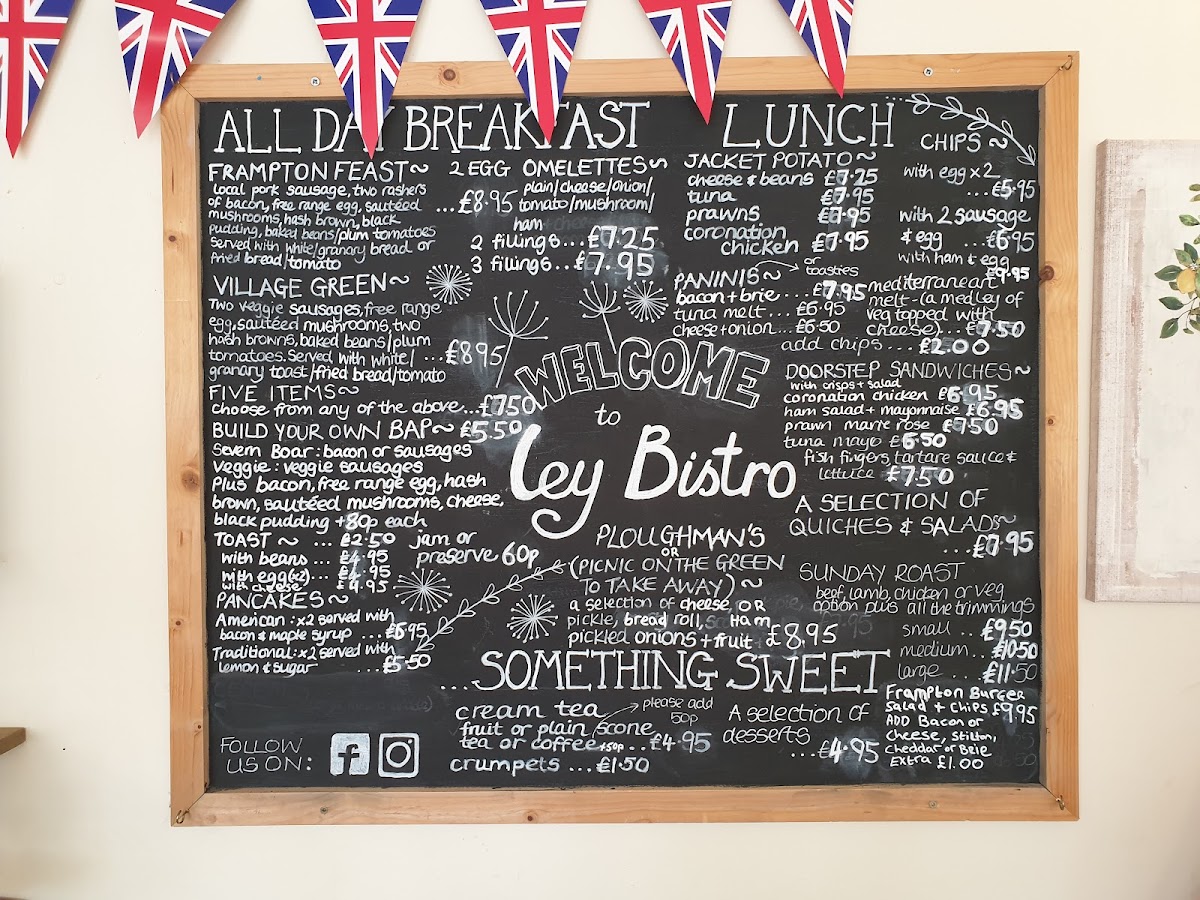 ALL DAY BREAKFAST
FRAMPTON FEAST~
local pork sausage, two rashers
of bacon, free range egg, sautéed
mushrooms, hash brown, black
pudding, baked beans/plum tomatoes
served with white/granary bread or
fried bread/tomato
...£8.95
VILLAGE GREEN~
Two veggie sausages, free range
egg, sautéed mushrooms, two
hash browns, baked beans/plum
tomatoes. Served with white/ ...£8.95
granary toast/fried bread/tomato
FIVE ITEMS~
choose from any of the above...£7.50
BUILD YOUR OWN BAP~ £5.50
Severn Boar: bacon or sausages
Veggie: veggie sausages
Plus bacon, free range egg, hash
brown, sautéed mushrooms, cheese,
black pudding +80p each
TOAST ~ ... £2.50
with beans ... £4.95
with egg(x2)... £4.95
with cheese £4.95
jam or
preserve 60p
PANCAKES~
American: x2 served with
bacon & maple syrup ...£6.95
Traditional: x2 served with
lemon & sugar ...£5.50
FOLLOW
US ON:
f
2 EGG OMELETTES~
plain/cheese/onion/
tomato/mushroom/
ham
2 fillings...£7.25
3 fillings...£7.95
WELCOME
to
ley Bistro
PLOUGHMAN'S
OR
(PICNIC ON THE GREEN
TO TAKE AWAY)~
a selection of cheese, OR
pickle, bread roll, Ham
pickled onions + fruit £8.95
LUNCH
JACKET POTATO~
cheese & beans £7.25
tuna £7.95
prawns £7.95
coronation
chicken £7.95
CHIPS ~
with egg x2
...£5.95
with 2 sausage
& egg ...£6.95
with ham & egg
£9.95
PANINIS~ or
toasties
bacon + brie ... £7.95
tuna melt... £6.95
cheese + onion... £6.50
mediterranean
melt-(a medley of
veg topped with
cheese)...£7.50
add chips... £2.00
DOORSTEP SANDWICHES~
with crisps + salad
coronation chicken £6.95
ham salad + mayonnaise £6.95
prawn marie rose £7.50
tuna mayo £6.50
fish fingers, tartare sauce &
lettuce £7.50
A SELECTION OF
QUICHES & SALADS~
...£7.95
SUNDAY ROAST
beef, lamb, chicken or veg
option plus all the trimmings
small ... £9.50
medium... £10.50
large ... £11.50
Frampton Burger
Salad + chips £9.95
ADD Bacon or
cheese, Stilton,
Cheddar or Brie
Extra £1.00
...SOMETHING SWEET
cream tea
fruit or plain scone
please add
50p
tea or coffee +50p...£4.95
crumpets ... £1.50
A selection of
desserts
...£4.95